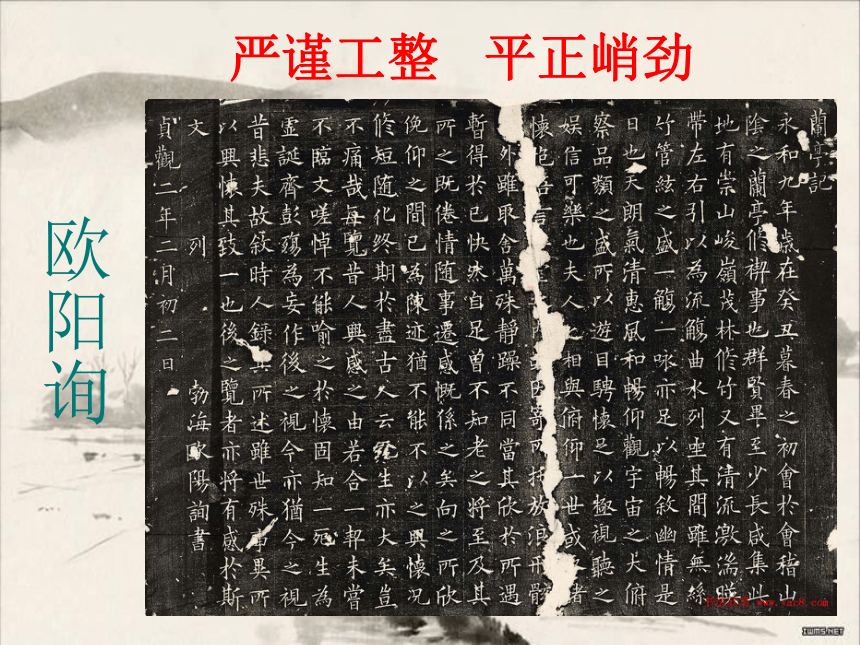 严谨工整 平正峭劲
欧阳询
蘭亭記
永和九年歲在癸丑暮春之初會於會稽山
陰之蘭亭修禊事也群賢畢至少長咸集此
地有崇山峻嶺茂林修竹又有清流激湍暎
帶左右引以為流觴曲水列坐其間雖無絲
竹管絃之盛一觴一咏亦足以暢敘幽情是
日也天朗氣清惠風和暢仰觀宇宙之大俯
察品類之盛所以遊目騁懷足以極視聽之
娛信可樂也夫人之相與俯仰一世或諸
懷抱言因寄所托放浪形骸
外雖取舍萬殊靜躁不同當其欣於所遇
暫得於己快然自足曾不知老之將至及其
所之既倦情随事遷感慨係之矣向之所欣
俛仰之間已為陳迹猶不能不以之興懷况
修短随化终期於盡古人云死生亦大矣豈
不痛哉每覽昔人興感之由若合一契未嘗
不臨文嗟悼不能喻之於懷固知一死生為
虛誕齊彭殤為妄作後之視今亦猶今之視
昔悲夫故敘時人錄其所述雖世殊事異所
以興懷其致一也後之覽者亦將有感於斯
文 列 勃海歐陽詢書
貞觀二年二月初二日